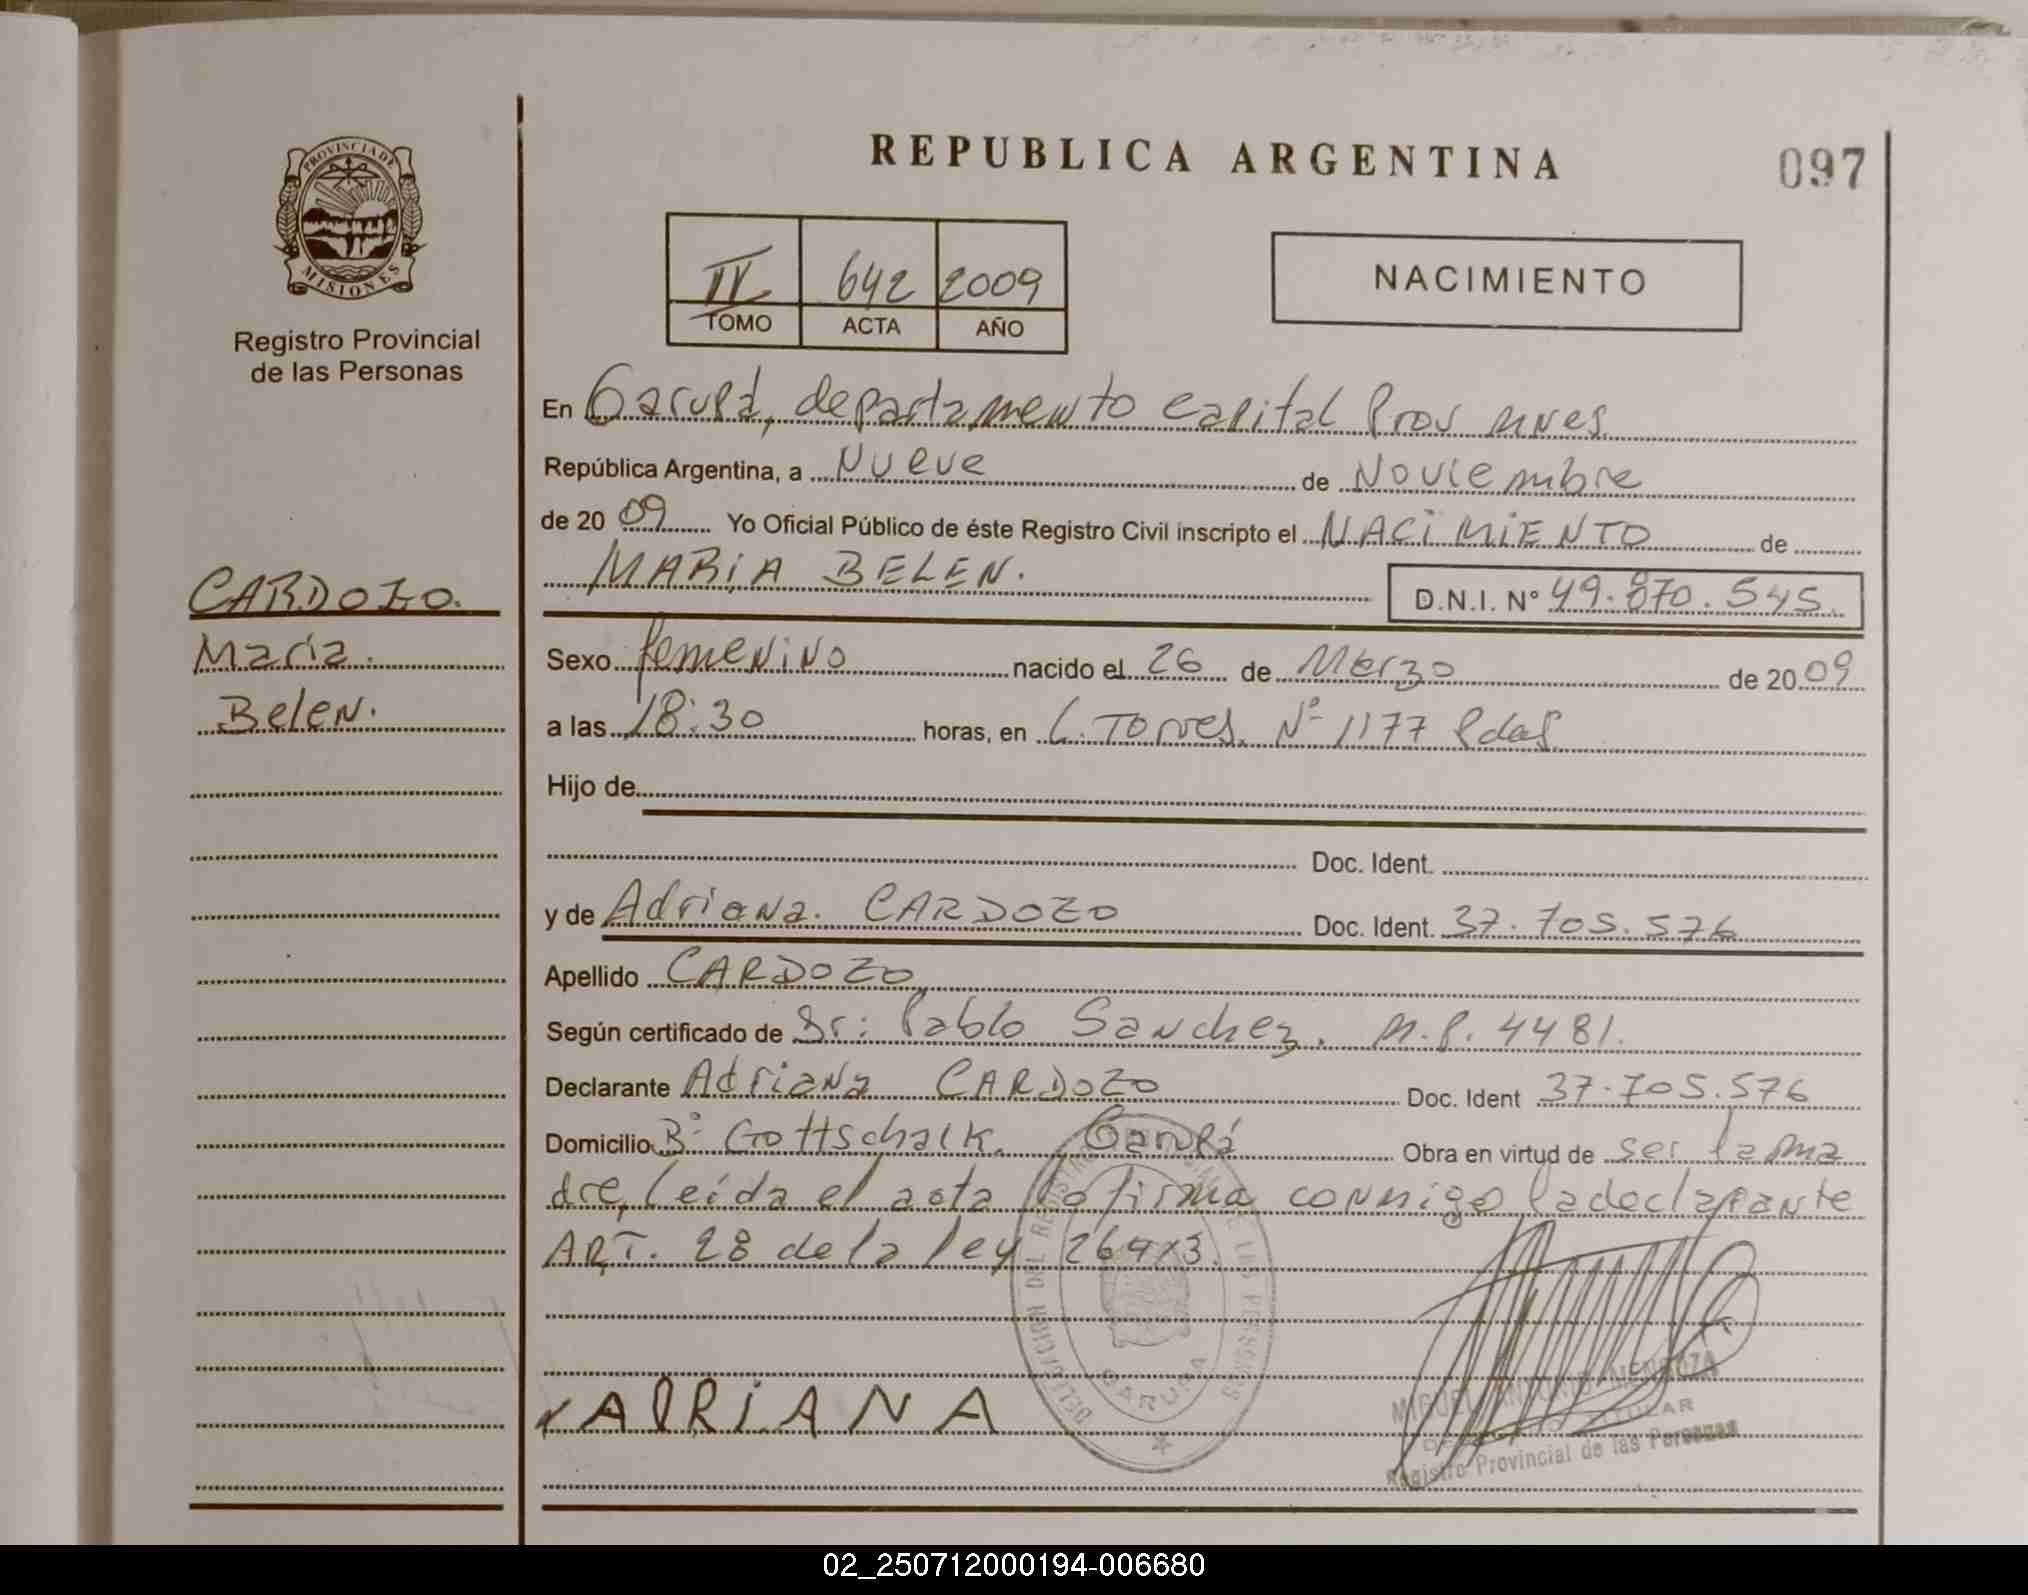 PROVINCIA DE
MISIONES
Registro Provincial
de las Personas
CARDOZO.
Maria.
Belen.
REPUBLICA ARGENTINA
097
IV 642 2009
TOMO ACTA AÑO
NACIMIENTO
En Garupá, departamento capital Prov mnes
República Argentina, a Nueve de Noviembre
de 2009 Yo Oficial Público de éste Registro Civil inscripto el NACIMIENTO de
MARIA BELEN.
D.N.I. Nº 49.870.545
Sexo femenino nacido el 26 de Marzo de 2009
a las 18:30 horas, en C. Torres Nº 1177 Pdas
Hijo de
Doc. Ident.
y de Adriana CARDOZO Doc. Ident. 37.705.576
Apellido CARDOZO
Según certificado de Dr: Pablo Sanchez. M.P. 4481.
Declarante Adriana CARDOZO Doc. Ident 37.705.576
Domicilio Bº Gottschalk. Garupá Obra en virtud de ser la ma
dre, leída el acta la firma conmigo la declarante
ART. 28 de la ley 26413.
DELEGACION DEL REGISTRO PROVINCIAL DE LAS PERSONAS
GARUPA
ADRIANA
MIGUEL ANTONIO MENDOZA
DELEGADO TITULAR
Registro Provincial de las Personas
02_250712000194-006680